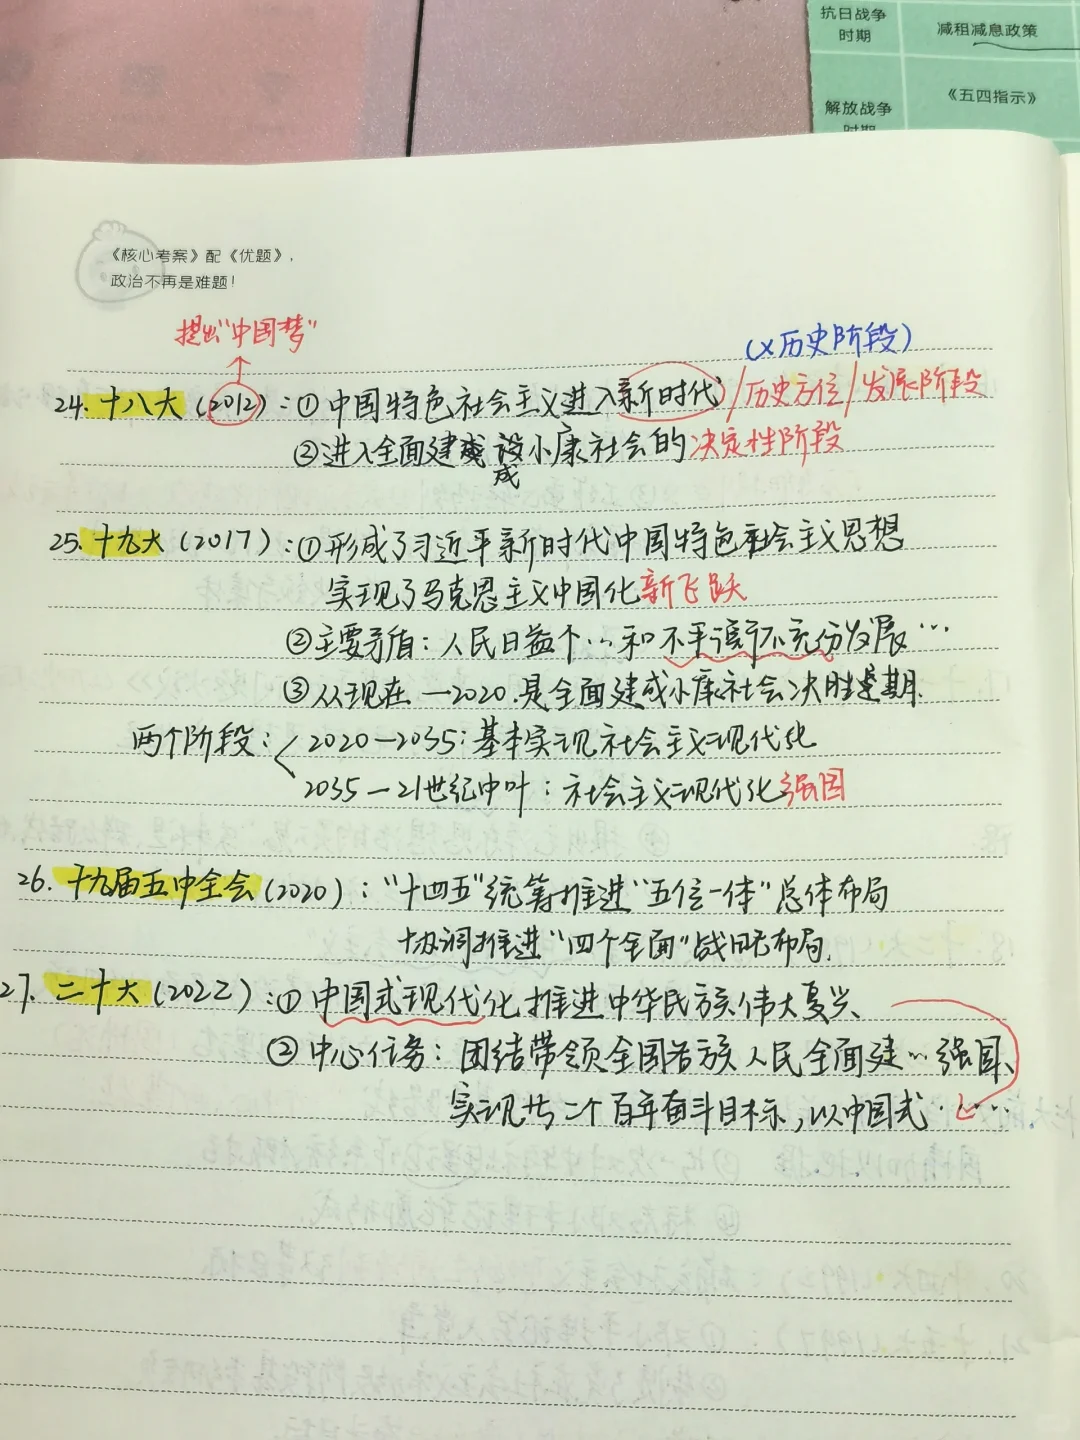 抗日战争
时期
减租减息政策
解放战争
时期
《五四指示》
《核心考案》配《优题》,
政治不再是难题!
提出"中国梦"
(x历史阶段)
24. 十八大(2012):①中国特色社会主义进入新时代/历史方位/发展阶段
②进入全面建成设小康社会的决定性阶段
成
25. 十九大(2017):①形成了习近平新时代中国特色社会主义思想
实现了马克思主义中国化新飞跃
②主要矛盾:人民日益个…和不平衡不充份发展…
③从现在—2020.是全面建成小康社会决胜期.
两个阶段:
2020—2035:基本实现社会主义现代化
2035—21世纪中叶:社会主义现代化强国
26. 十九届五中全会(2020):"十四五"统筹推进"五位一体"总体布局
协调推进"四个全面"战略布局.
27. 二十大(2022):①中国式现代化推进中华民族伟大复兴
②中心任务:团结带领全国各族人民全面建…强国、
实现二个百年奋斗目标,以中国式……